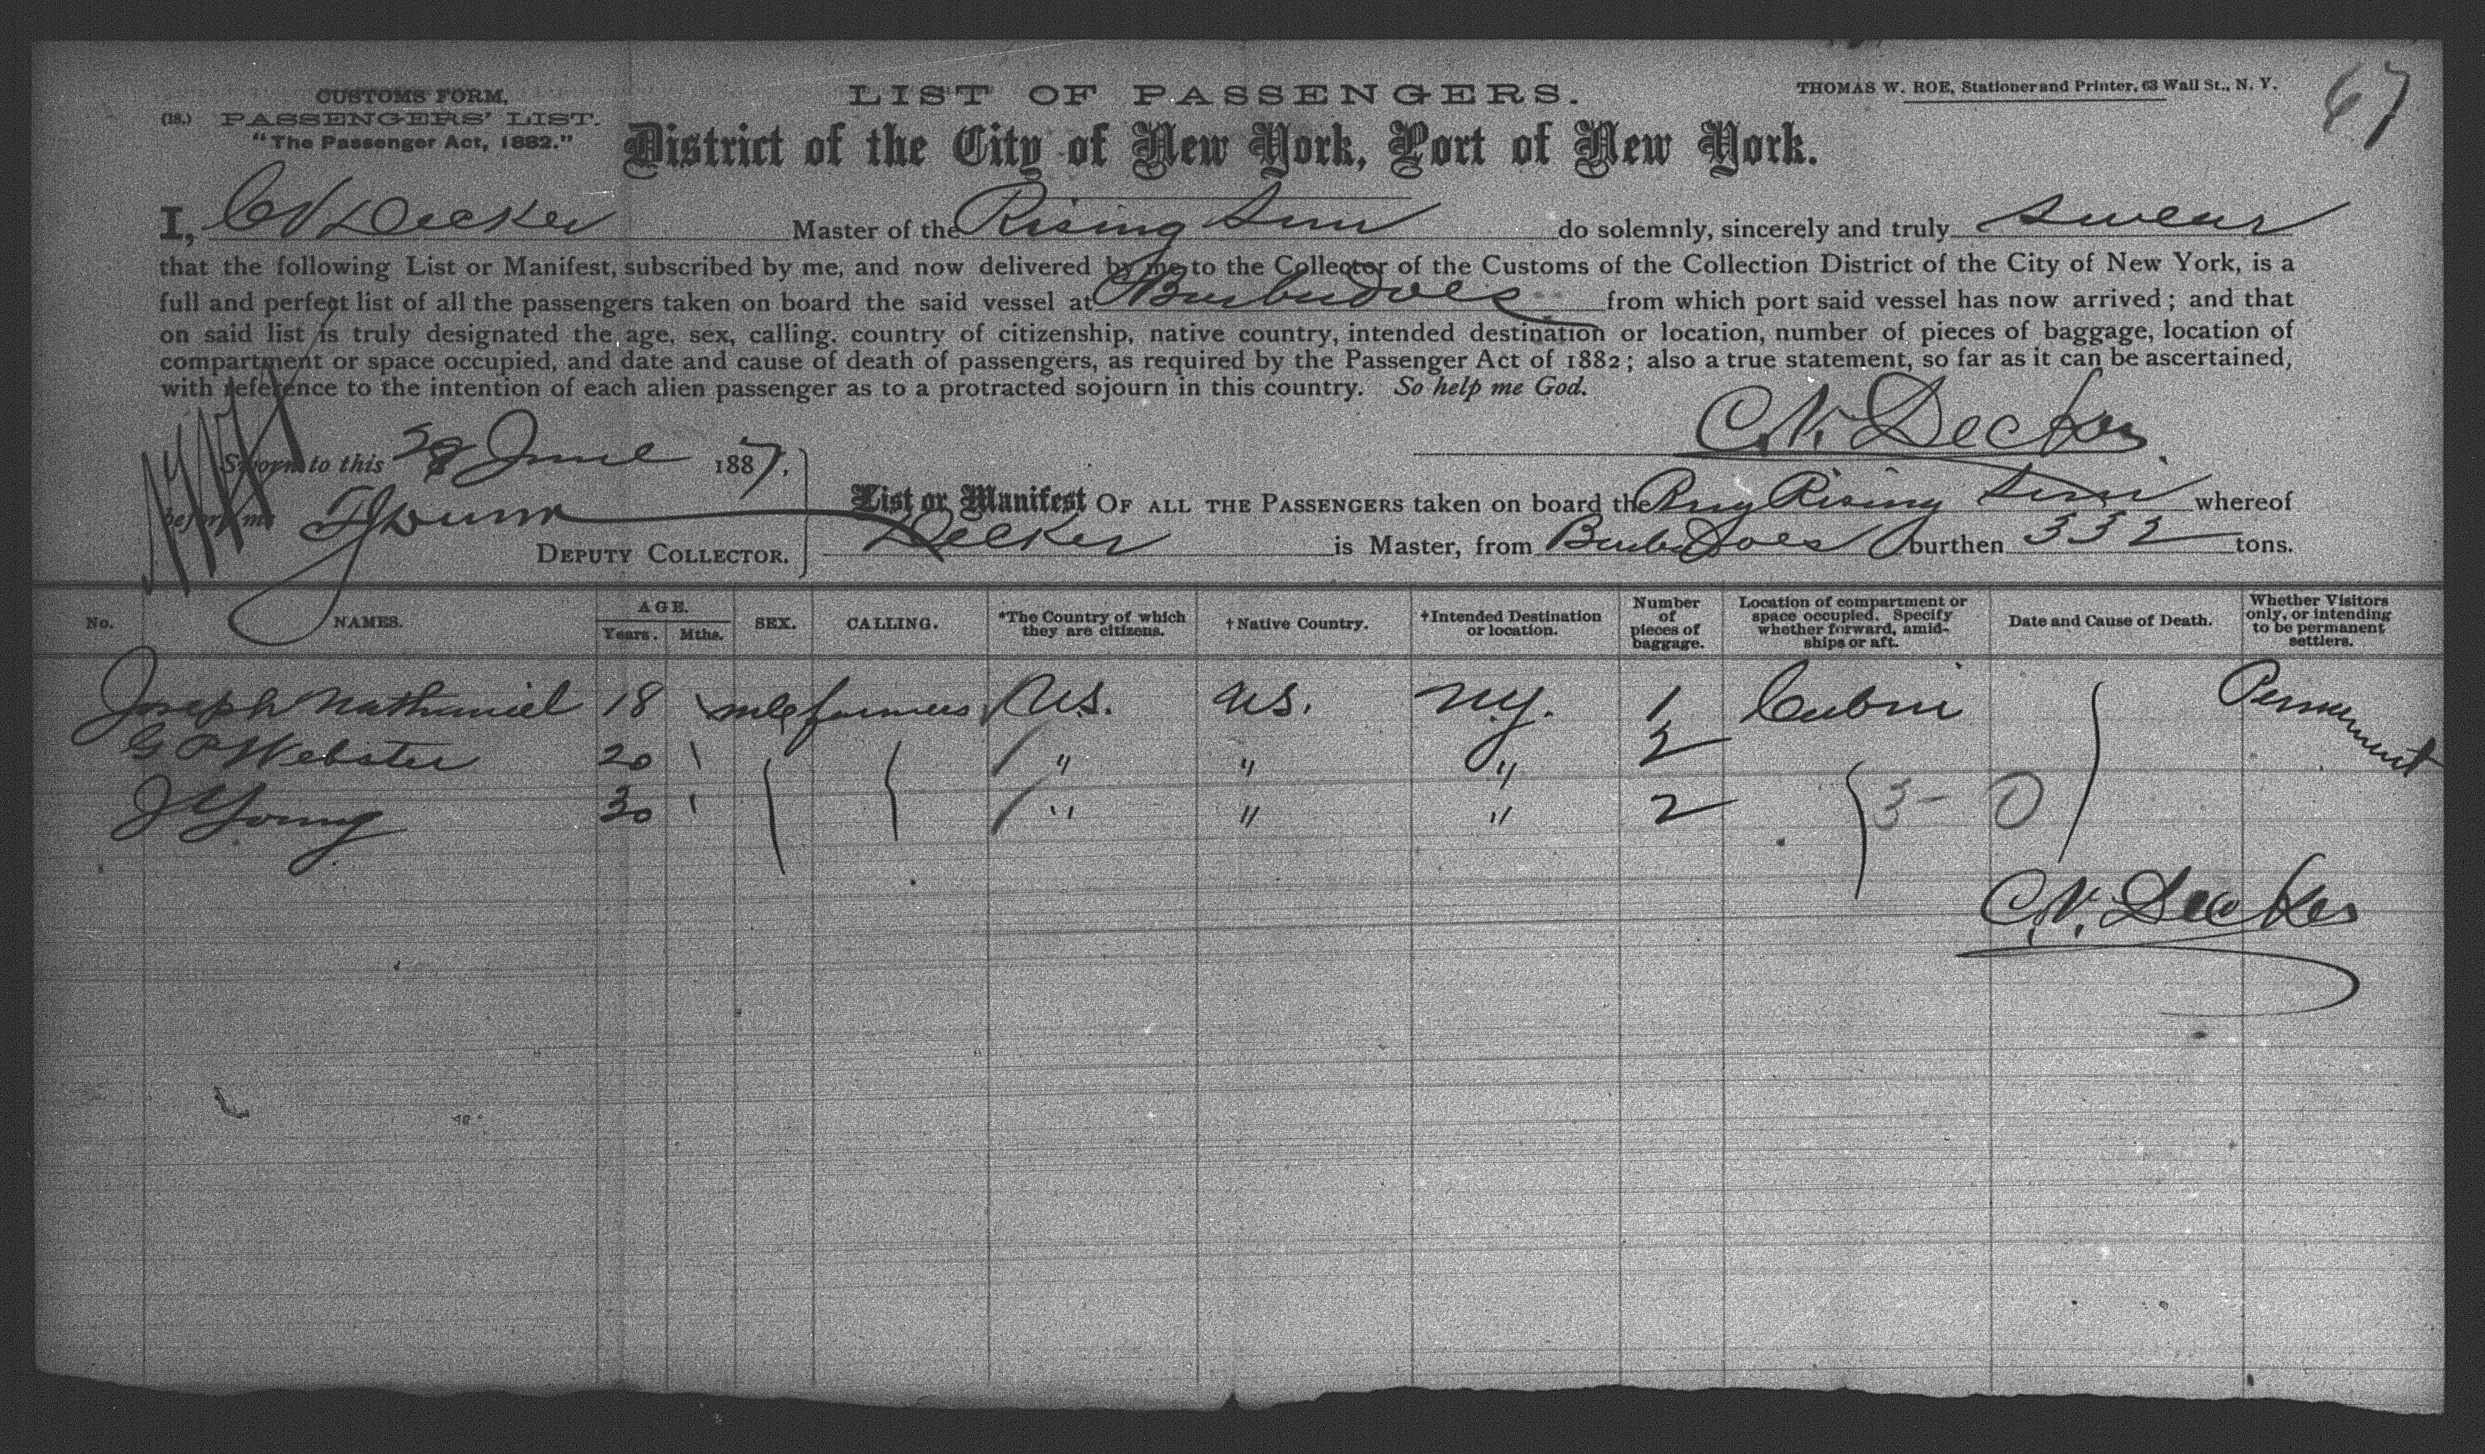 CUSTOMS FORM,
(18.) PASSENGERS' LIST.
"The Passenger Act, 1882."
LIST OF PASSENGERS.
THOMAS W. ROE, Stationer and Printer, 63 Wall St., N. Y.
67
District of the City of New York, Port of New York.
I, C V Decker Master of the Rising Sun do solemnly, sincerely and truly swear
that the following List or Manifest, subscribed by me, and now delivered by me to the Collector of the Customs of the Collection District of the City of New York, is a
full and perfect list of all the passengers taken on board the said vessel at Barbadoes from which port said vessel has now arrived; and that
on said list is truly designated the age, sex, calling, country of citizenship, native country, intended destination or location, number of pieces of baggage, location of
compartment or space occupied, and date and cause of death of passengers, as required by the Passenger Act of 1882; also a true statement, so far as it can be ascertained,
with reference to the intention of each alien passenger as to a protracted sojourn in this country. So help me God.
C. V. Decker
Sworn to this 28 June 1887,
before me
DEPUTY COLLECTOR.
List or Manifest OF ALL THE PASSENGERS taken on board the Brig Rising Sun whereof
Decker is Master, from Barbadoes burthen 332 tons.
No. NAMES. AGE. Years. Mths. SEX. CALLING. *The Country of which they are citizens. †Native Country. †Intended Destination or location. Number of pieces of baggage. Location of compartment or space occupied. Specify whether forward, amidships or aft. Date and Cause of Death. Whether Visitors only, or intending to be permanent settlers.
Joseph Nathaniel 18 farmers U.S. U.S. N.Y. 1 Cabin Permanent
G P Webster 20 " " " 2
J Young 30 " " " 2 3 - 0
C. V. Decker